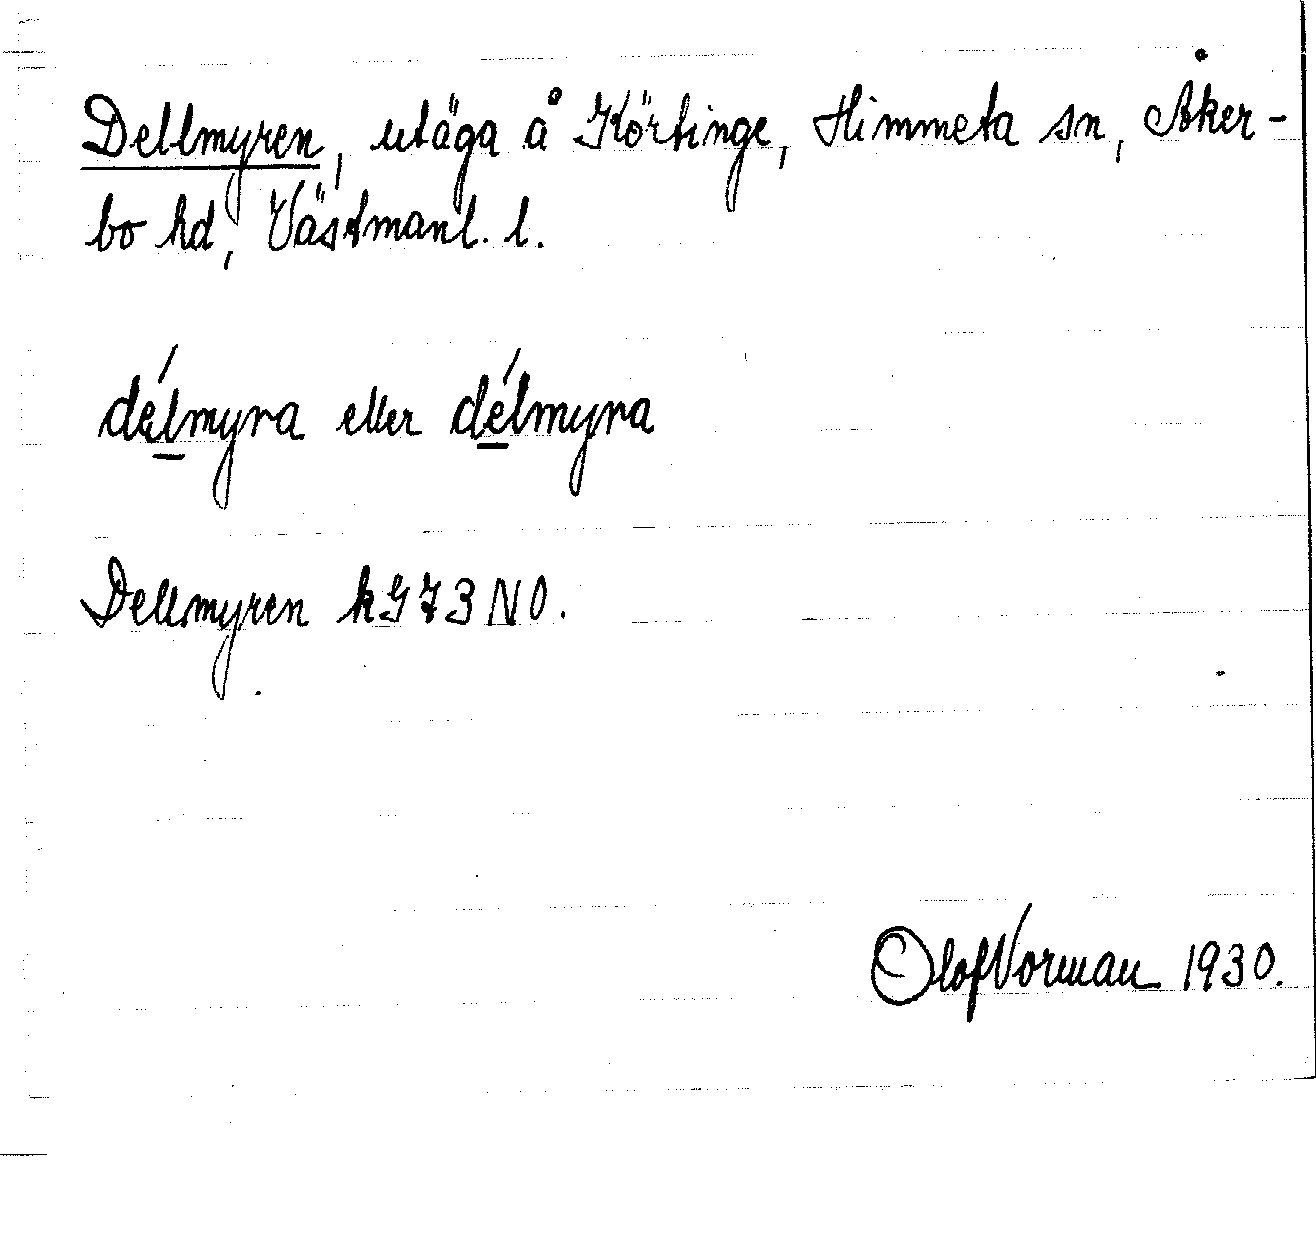 Dellmyren, utäga å Körtinge, Himmeta sn, Åker-
bo hd, Västmanl. l.
délmyra eller délmyra
Dellmyren kG73NO.
Olof Vorman 1930.